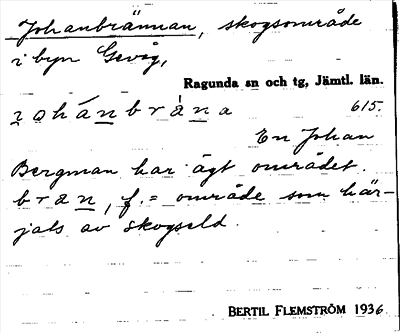 Johanbrännan, skogsområde
i byn Gevåg,
Ragunda sn och tg, Jämtl. län.
615.
En Johan
Bergman har ägt området.
område som här-
jats av skogseld.
BERTIL FLEMSTRÖM 1936